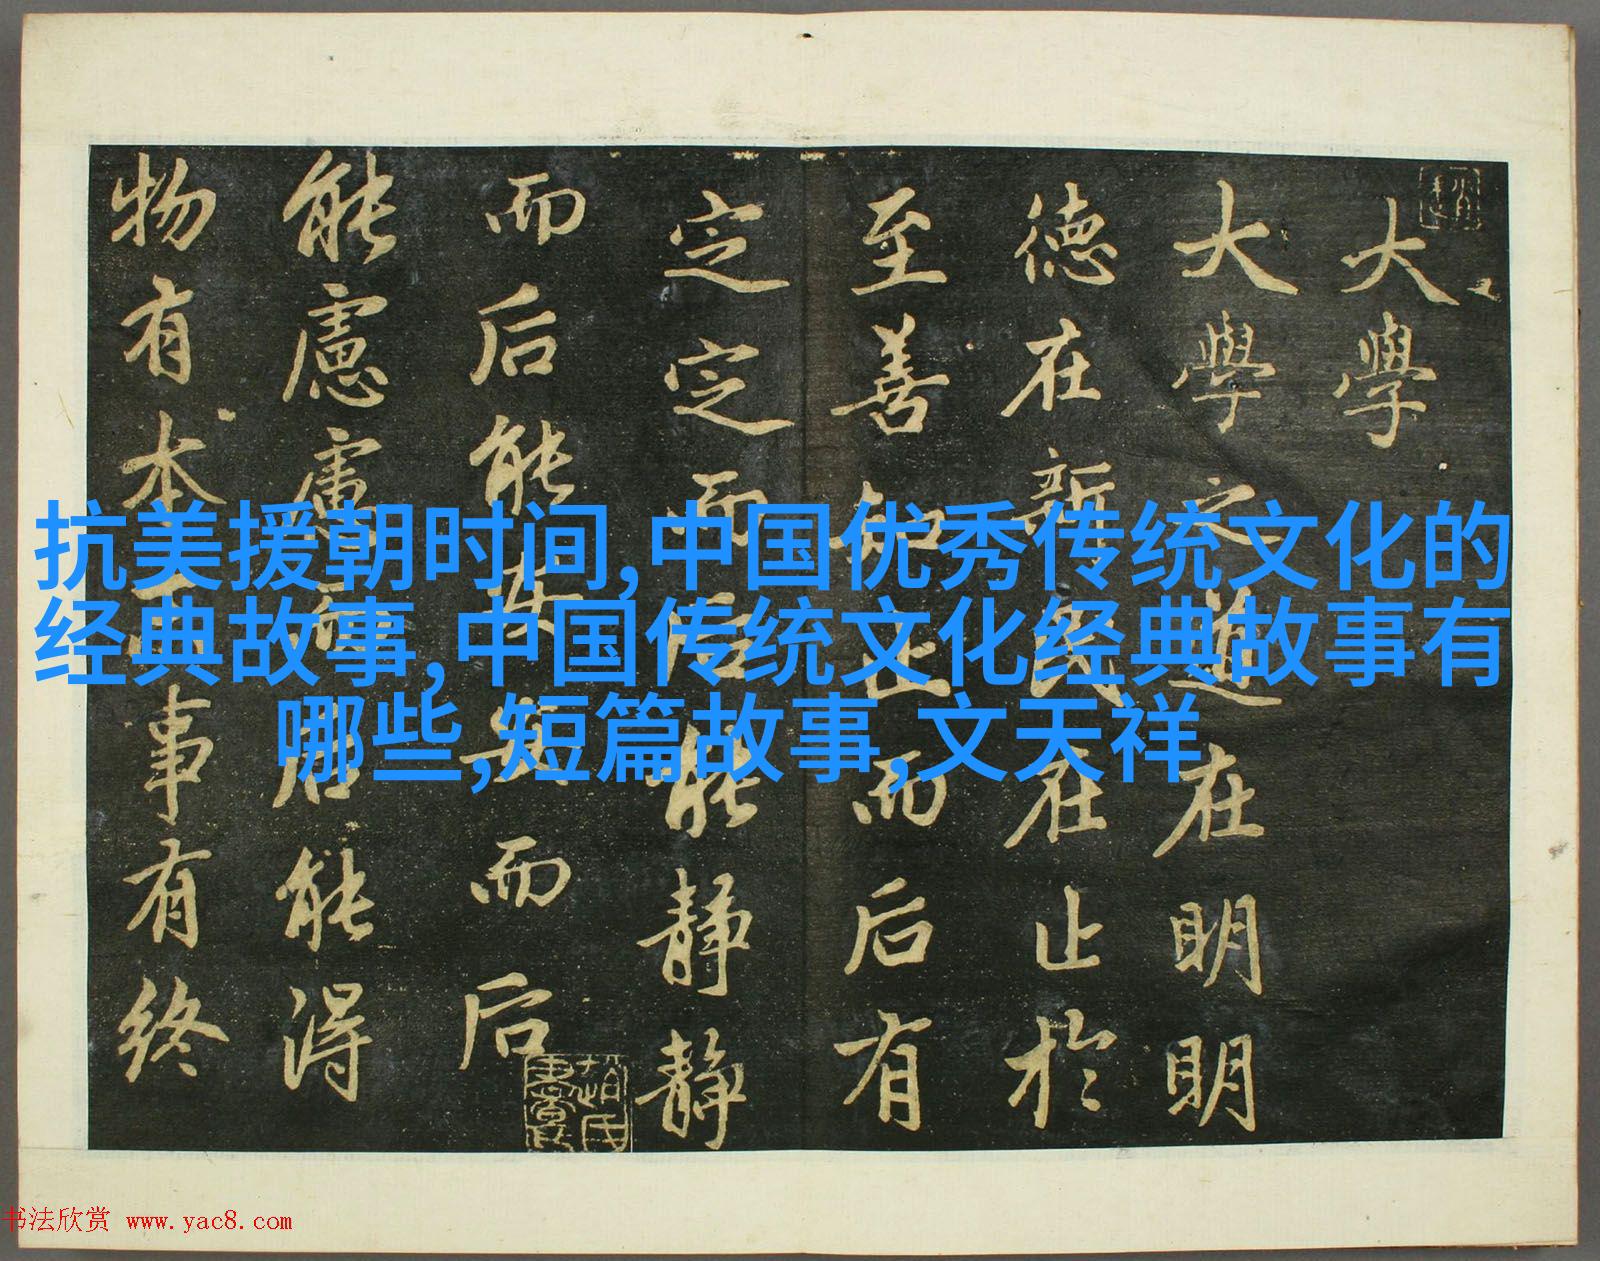 大學
大學之道在明明
德在新民在止於
至善知止而后有
定定而后能静静
而后能安安而后
能慮慮而后能得
物有本末事有終
抗美援朝时间,中国优秀传统文化的
经典故事,中国传统文化经典故事有
哪些,短篇故事,文天祥
书法欣赏 www.yac8.com